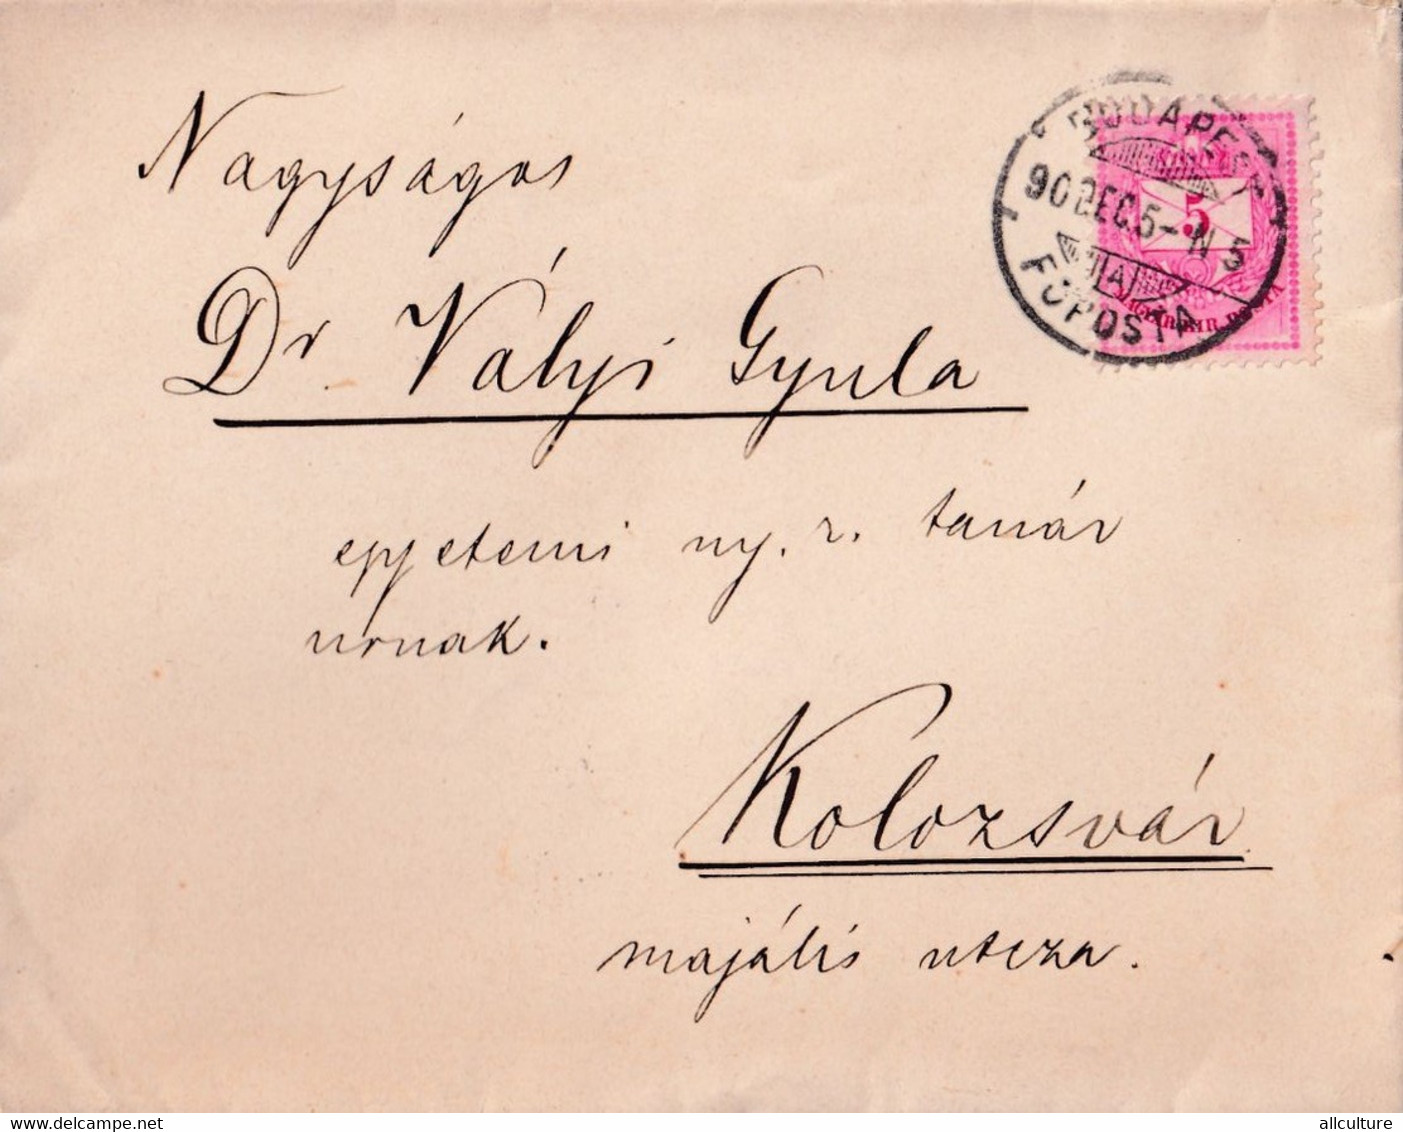 Nagyságos
Dr Vályi Gyula
egyetemi ny. r. tanár
urnak.
Kolozsvár
majális utcza.
BUDAPEST
90 DEC. 5 - N 5
A
FŐPOSTA
5
MAGYAR KIR. POSTA
www.delcampe.net
allculture